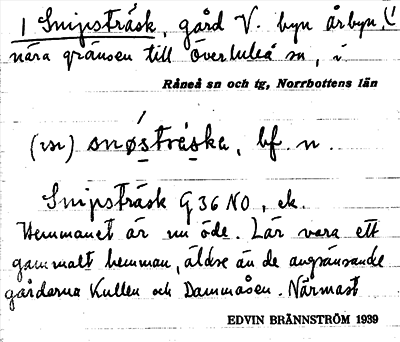 1 Snipsträsk, gård V. byn årbyn, (!
nära gränsen till Överluleå sn, i
Råneå sn och tg, Norrbottens län
(ısı) snøsträska, bf. n.
Snipsträsk G 36 NO, ek.
Hemmanet är nu öde. Lär vara ett
gammalt hemman, äldre än de angränsande
gårdarna Kullen och Dammåsen. Närmast
EDVIN BRÄNNSTRÖM 1939